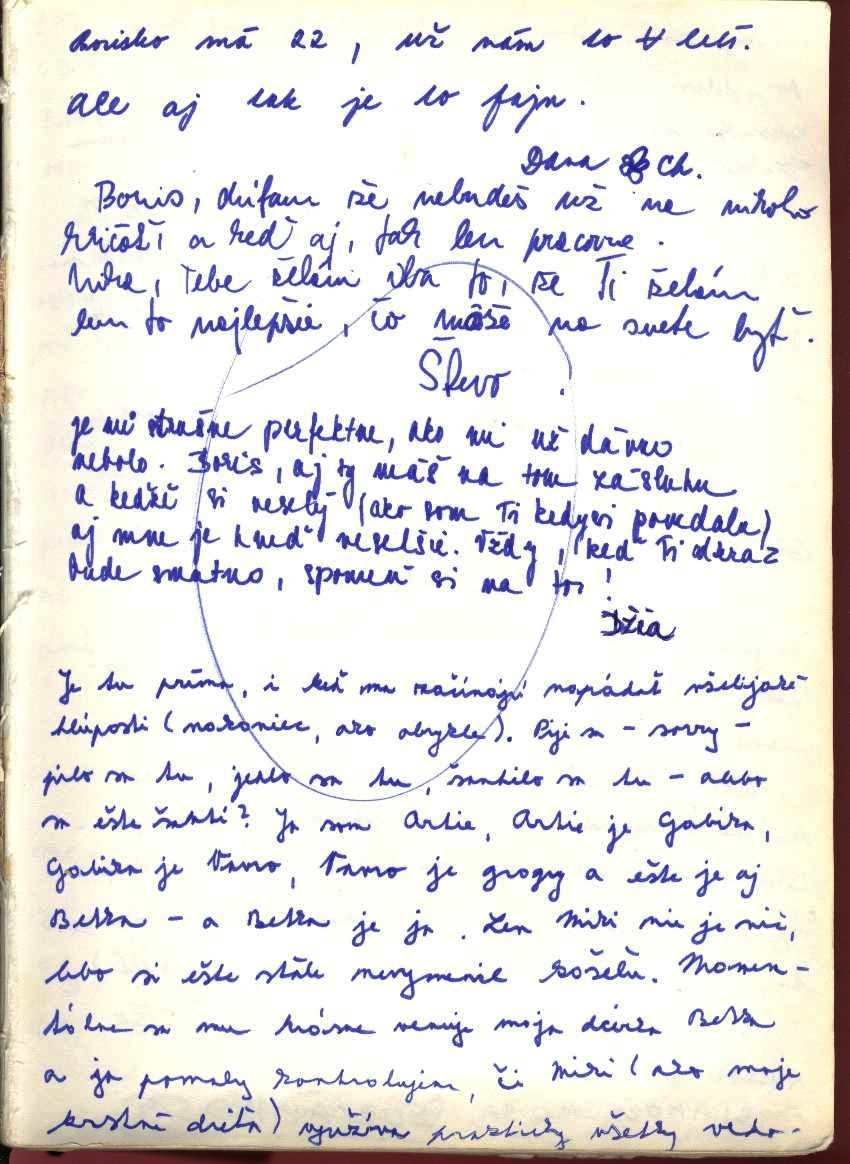 Borisko má 22, už nám to letí.
Ale aj tak je to fajn.
Dana Ch.
Boris, dúfam že nebudeš už na nikoho
kričať, a keď aj, tak len pracovne.
Mira, Tebe želám iba to, že Ti želám
len to najlepšie, čo môže na svete byť.
Števo.
je mi strašne perfektne, ako mi už dávno
nebolo. Boris, aj ty máš na tom zásluhu
a keďže si veselý (ako som Ti kedysi povedala)
aj mne je hneď veselšie. Vždy, keď Ti
bude smutno, spomeň si na to!
Džia
Je tu príma, i keď ma začínajú napádať všelijaké
hlúposti (nakoniec, ako obykle). Pije sa - sorry -
pilo sa tu, jedlo sa tu, šantilo sa tu - alebo
sa ešte šantí? Ja som Artie, Artie je Gabika,
Gabika je Vavro, Vavro je grogy a ešte je aj
Betka - a Betka je ja. Len Miki nie je nič,
lebo si ešte stále nevymenil košeľu. Momen-
tálne sa mu krásne venuje moja dcérka Betka
a ja pomaly kontrolujem, či Miki (ako moje
krstné dieťa) využíva prakticky všetky vedo-